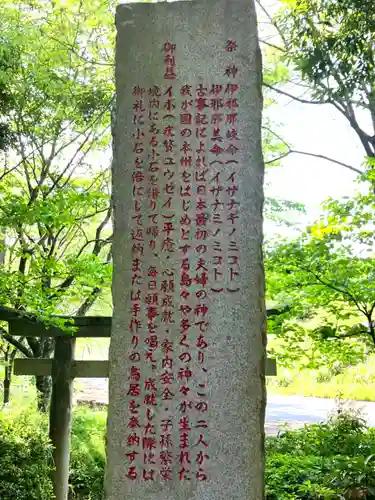 祭神 伊邪那岐命(イザナギノミコト)
伊邪那美命(イザナミノミコト)
古事記によれば日本最初の夫婦の神であり、この二人から
我が国の本州をはじめとする島々や多くの神々が生まれた
御利益
イボ(疣贅ユウゼイ)平癒・心願成就・家内安全・子孫繁栄
境内にある小石を借りて帰り、毎日願事を唱え、成就した際には
御礼に小石を倍にして返納または手作りの鳥居を奉納する